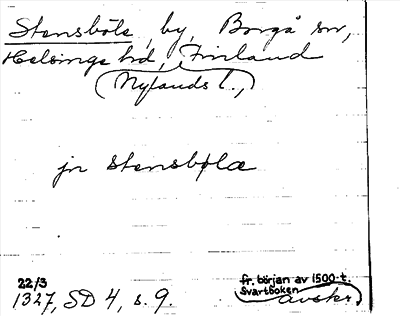 Stensböle, by, Borgå sn,
Helsinge hd, Finland
(Nylands l.,)
jn stensbølæ
22/3
1327, SD 4, s. 9.
fr. början av 1500-t.
Svartboken
avskr.